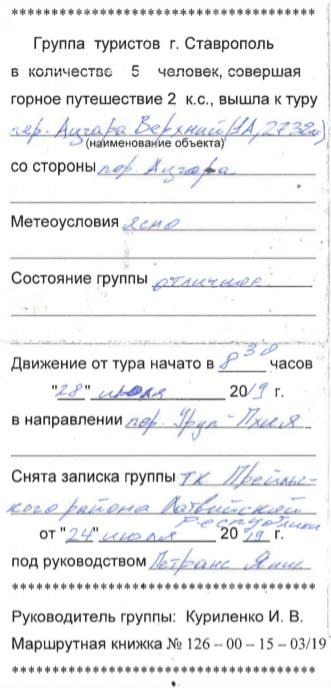 ******************************
Группа туристов г. Ставрополь
в количестве 5 человек, совершая
горное путешествие 2 к.с., вышла к туру
пер. Ацгара Верхний (1А, 2732м)
(наименование объекта)
со стороны пер. Ацгара
Метеоусловия ясно
Состояние группы отличное
Движение от тура начато в 8 30 часов
"28" июля 2019 г.
в направлении пер. Уруп-Пхия
Снята записка группы ТК Прейль-
ского района Латвийской
Республики
от "24" июля 2019 г.
под руководством Петранс Янис
******************************
Руководитель группы: Куриленко И. В.
Маршрутная книжка № 126 – 00 – 15 – 03/19
******************************